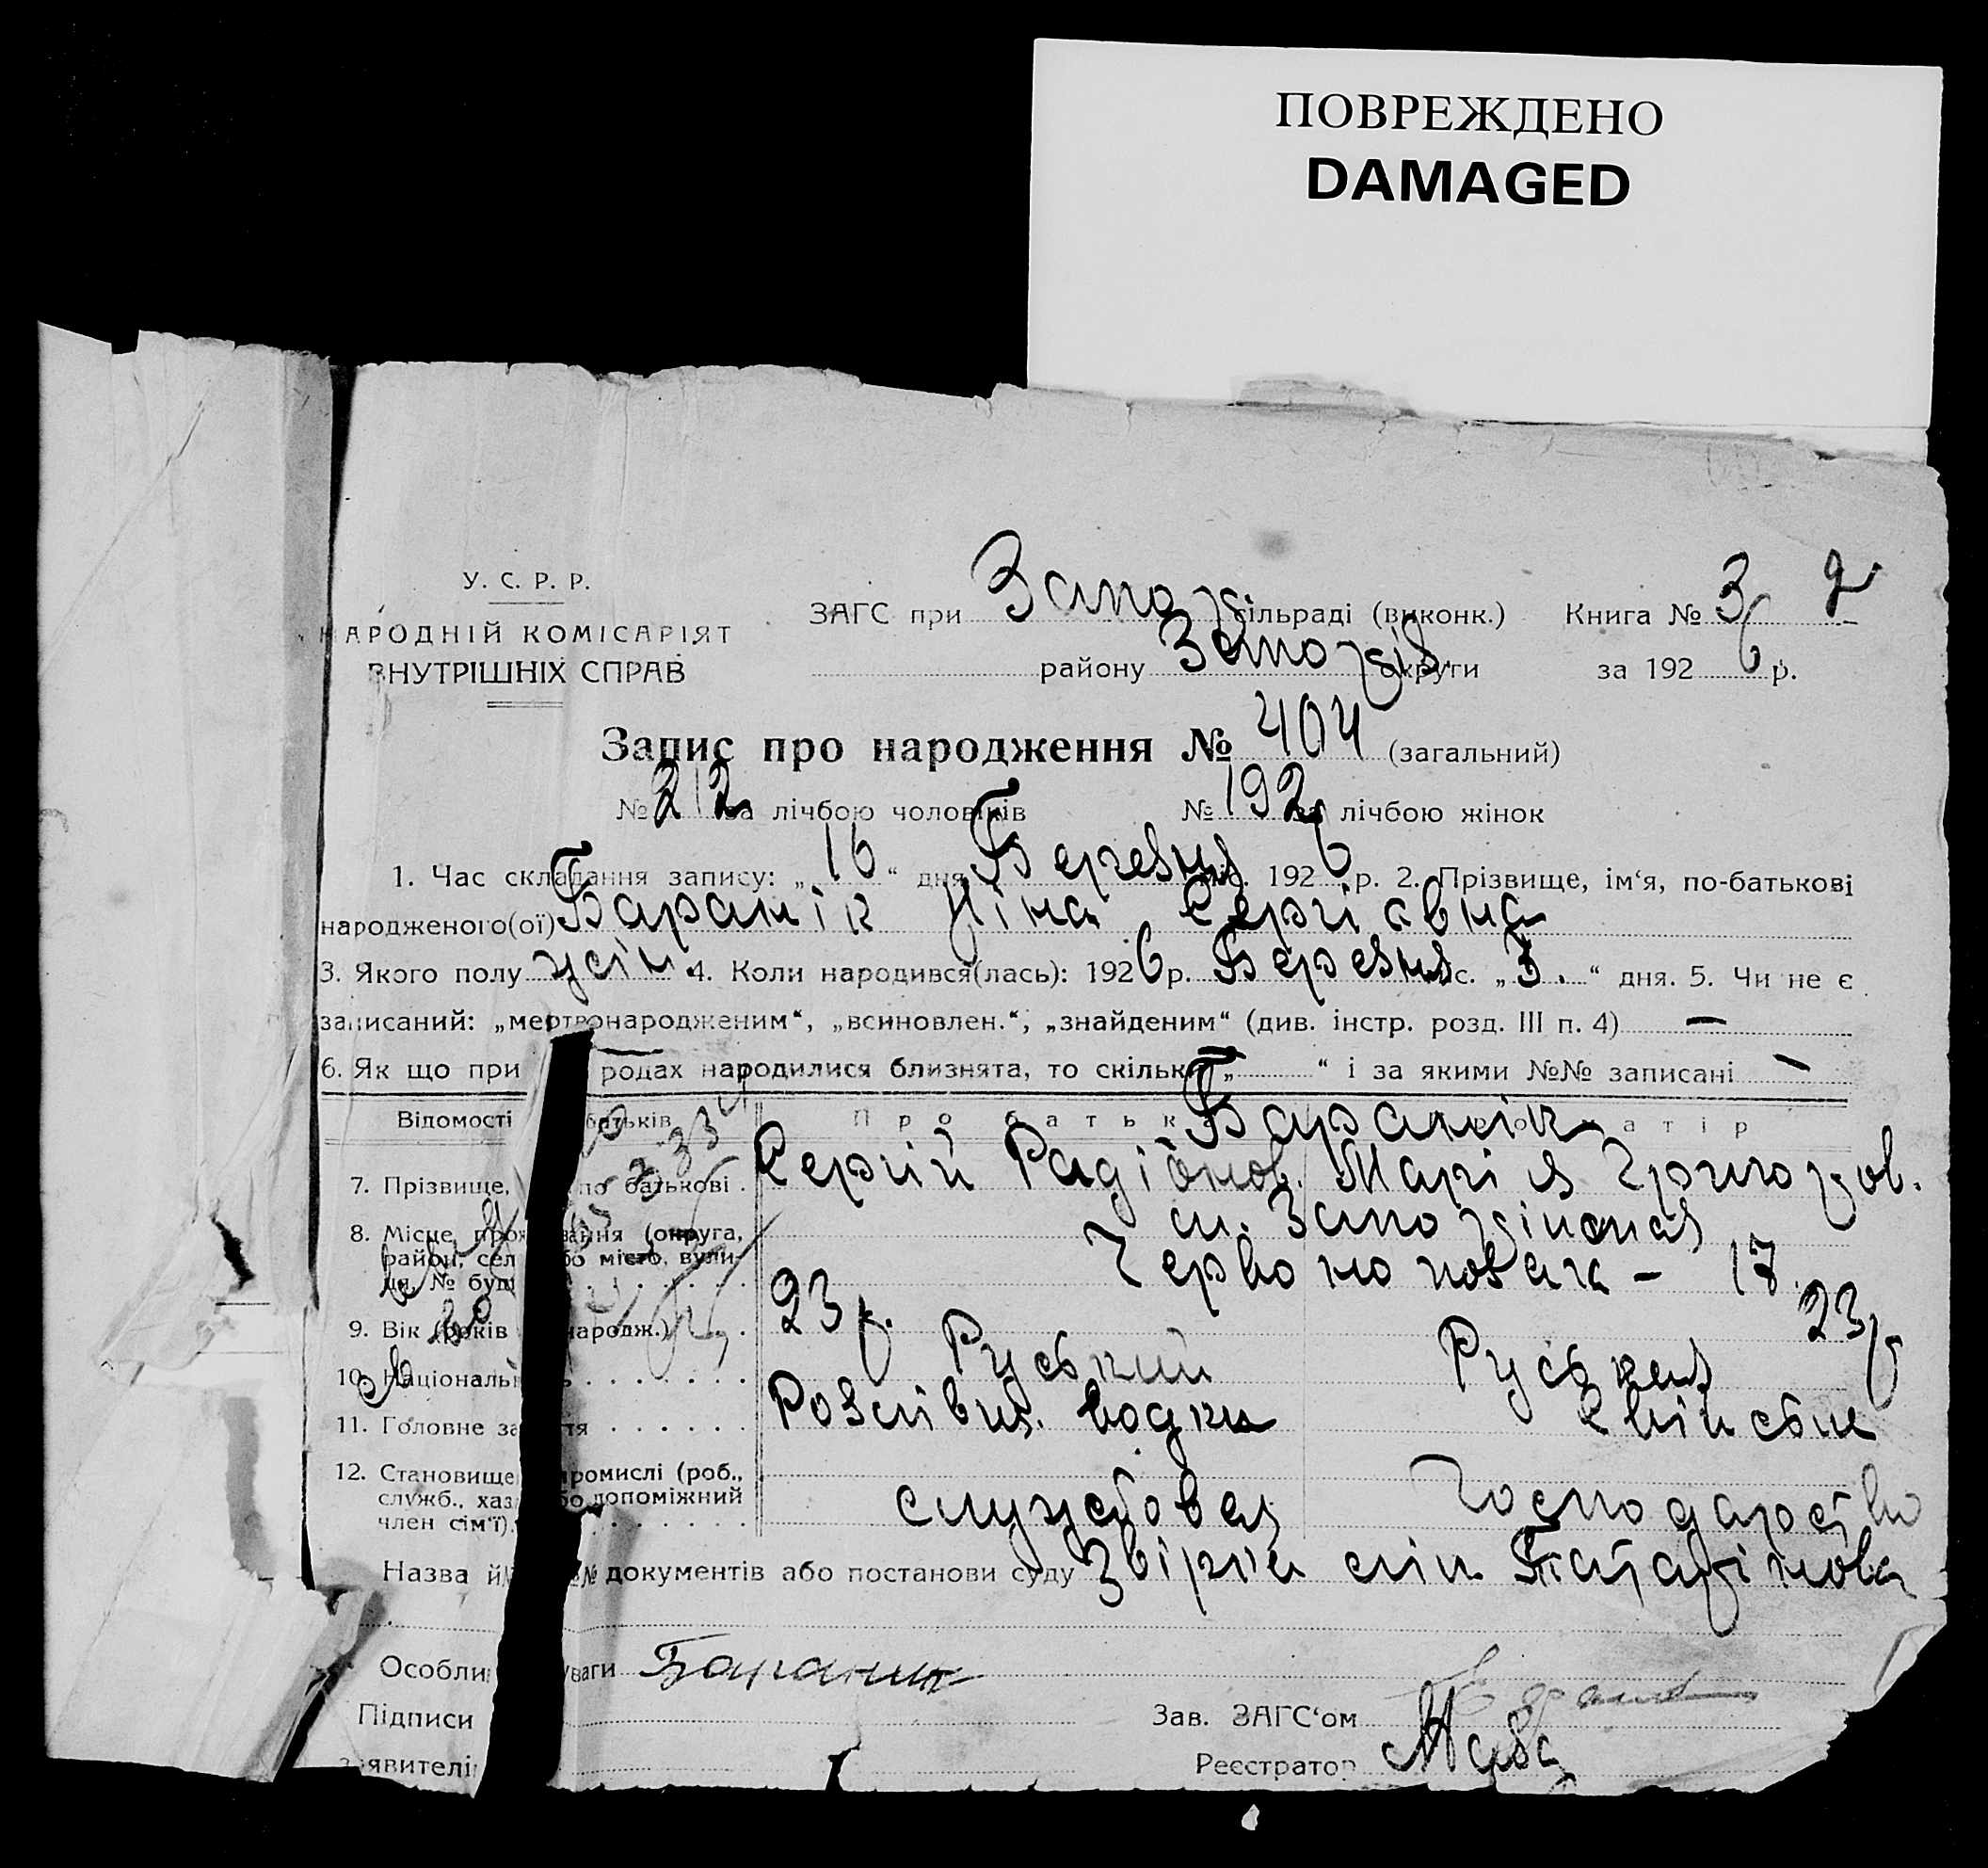 ПОВРЕЖДЕНО
DAMAGED
У. С. Р. Р.
НАРОДНІЙ КОМІСАРІЯТ
ВНУТРІШНІХ СПРАВ
ЗАГС при Запоріз сільраді (виконк.) Книга № 3 2
району Запоріз. округи за 1926 р.
Запис про народження № 404 (загальний)
№ 212 за лічбою чоловіків № 192 за лічбою жінок
1. Час складання запису: „16“ дня Березня міс. 1926 р. 2. Прізвище, ім'я, по-батькові
народженого(ої) Баранік Ніна Сергіевна
3. Якого полу жін. 4. Коли народився(лась): 1926 р. Березня міс. „3.“ дня. 5. Чи не є
записаний: „мертвонародженим“, „всиновлен.“, „знайденим“ (див. інстр. розд. III п. 4) —
6. Як що при родах народилися близнята, то скільки „ “ і за якими №№ записані —
Відомості батьків Про батька Про матір
Баранік
7. Прізвище, по батькові. Сергій Радіонов. Марія Григоров.
8. Місце прожування (округа, м. Запоріжжя
район, село або місто, вули- Червоно козач - 17.
ця, № буд
9. Вік (років народж.) 23 р. 23 р
10. Національ Руський Руская
11. Головне за тя Розливщ. водки
12. Становище промислі (роб.,
служб., хаз або допоміжний службовец Господарство
член сім'ї).
Назва й №№ документів або постанови суду
Особли уваги Бараник
Підписи Зав. ЗАГС'ом
заявителі Реєстратор